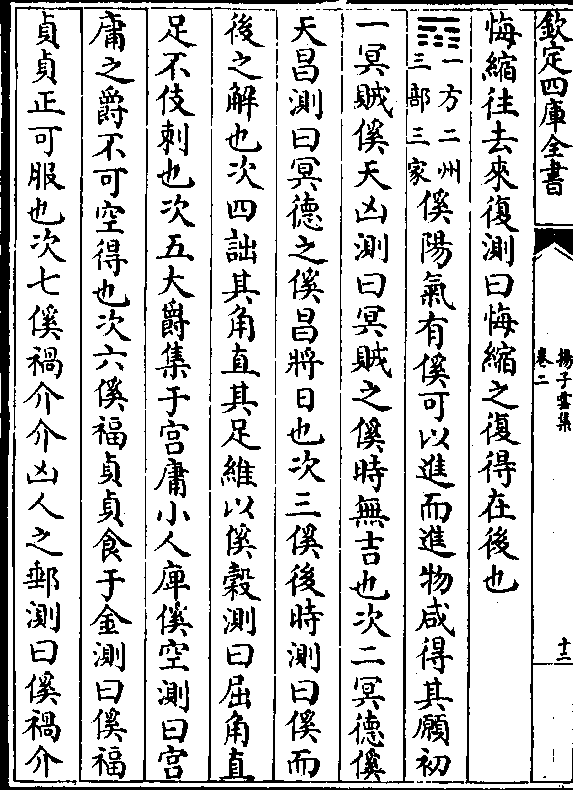 欽定四庫全書
揚子雲集
卷二
十二
悔縮往去來復測曰悔縮之復得在後也
一方二州
三部三家
傒陽氣有傒可以進而進物咸得其願初
一冥賊傒天凶測曰冥賊之傒時無吉也次二冥德傒
天昌測曰冥德之傒昌將日也次三傒後時測曰傒而
後之解也次四詘其角直其足維以傒穀測曰屈角直
足不伎刺也次五大爵集于宮庸小人庳傒空測曰宮
庸之爵不可空得也次六傒福貞貞食于金測曰傒福
貞貞正可服也次七傒禍介介凶人之郵測曰傒禍介